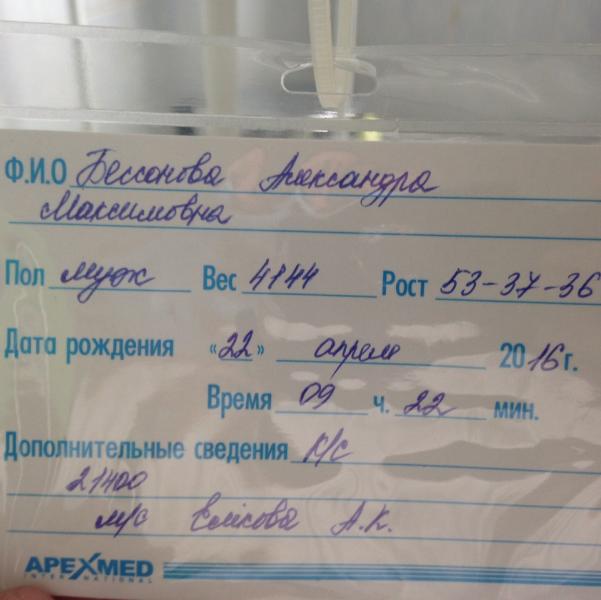 Ф.И.О Бессонова Александра
Максимовна
Пол муж Вес 4144 Рост 53-37-36
Дата рождения «22» апреля 2016 г.
Время 09 ч. 22 мин.
Дополнительные сведения К/с
21400
м/с А.К.
APEXMED
INTERNATIONAL